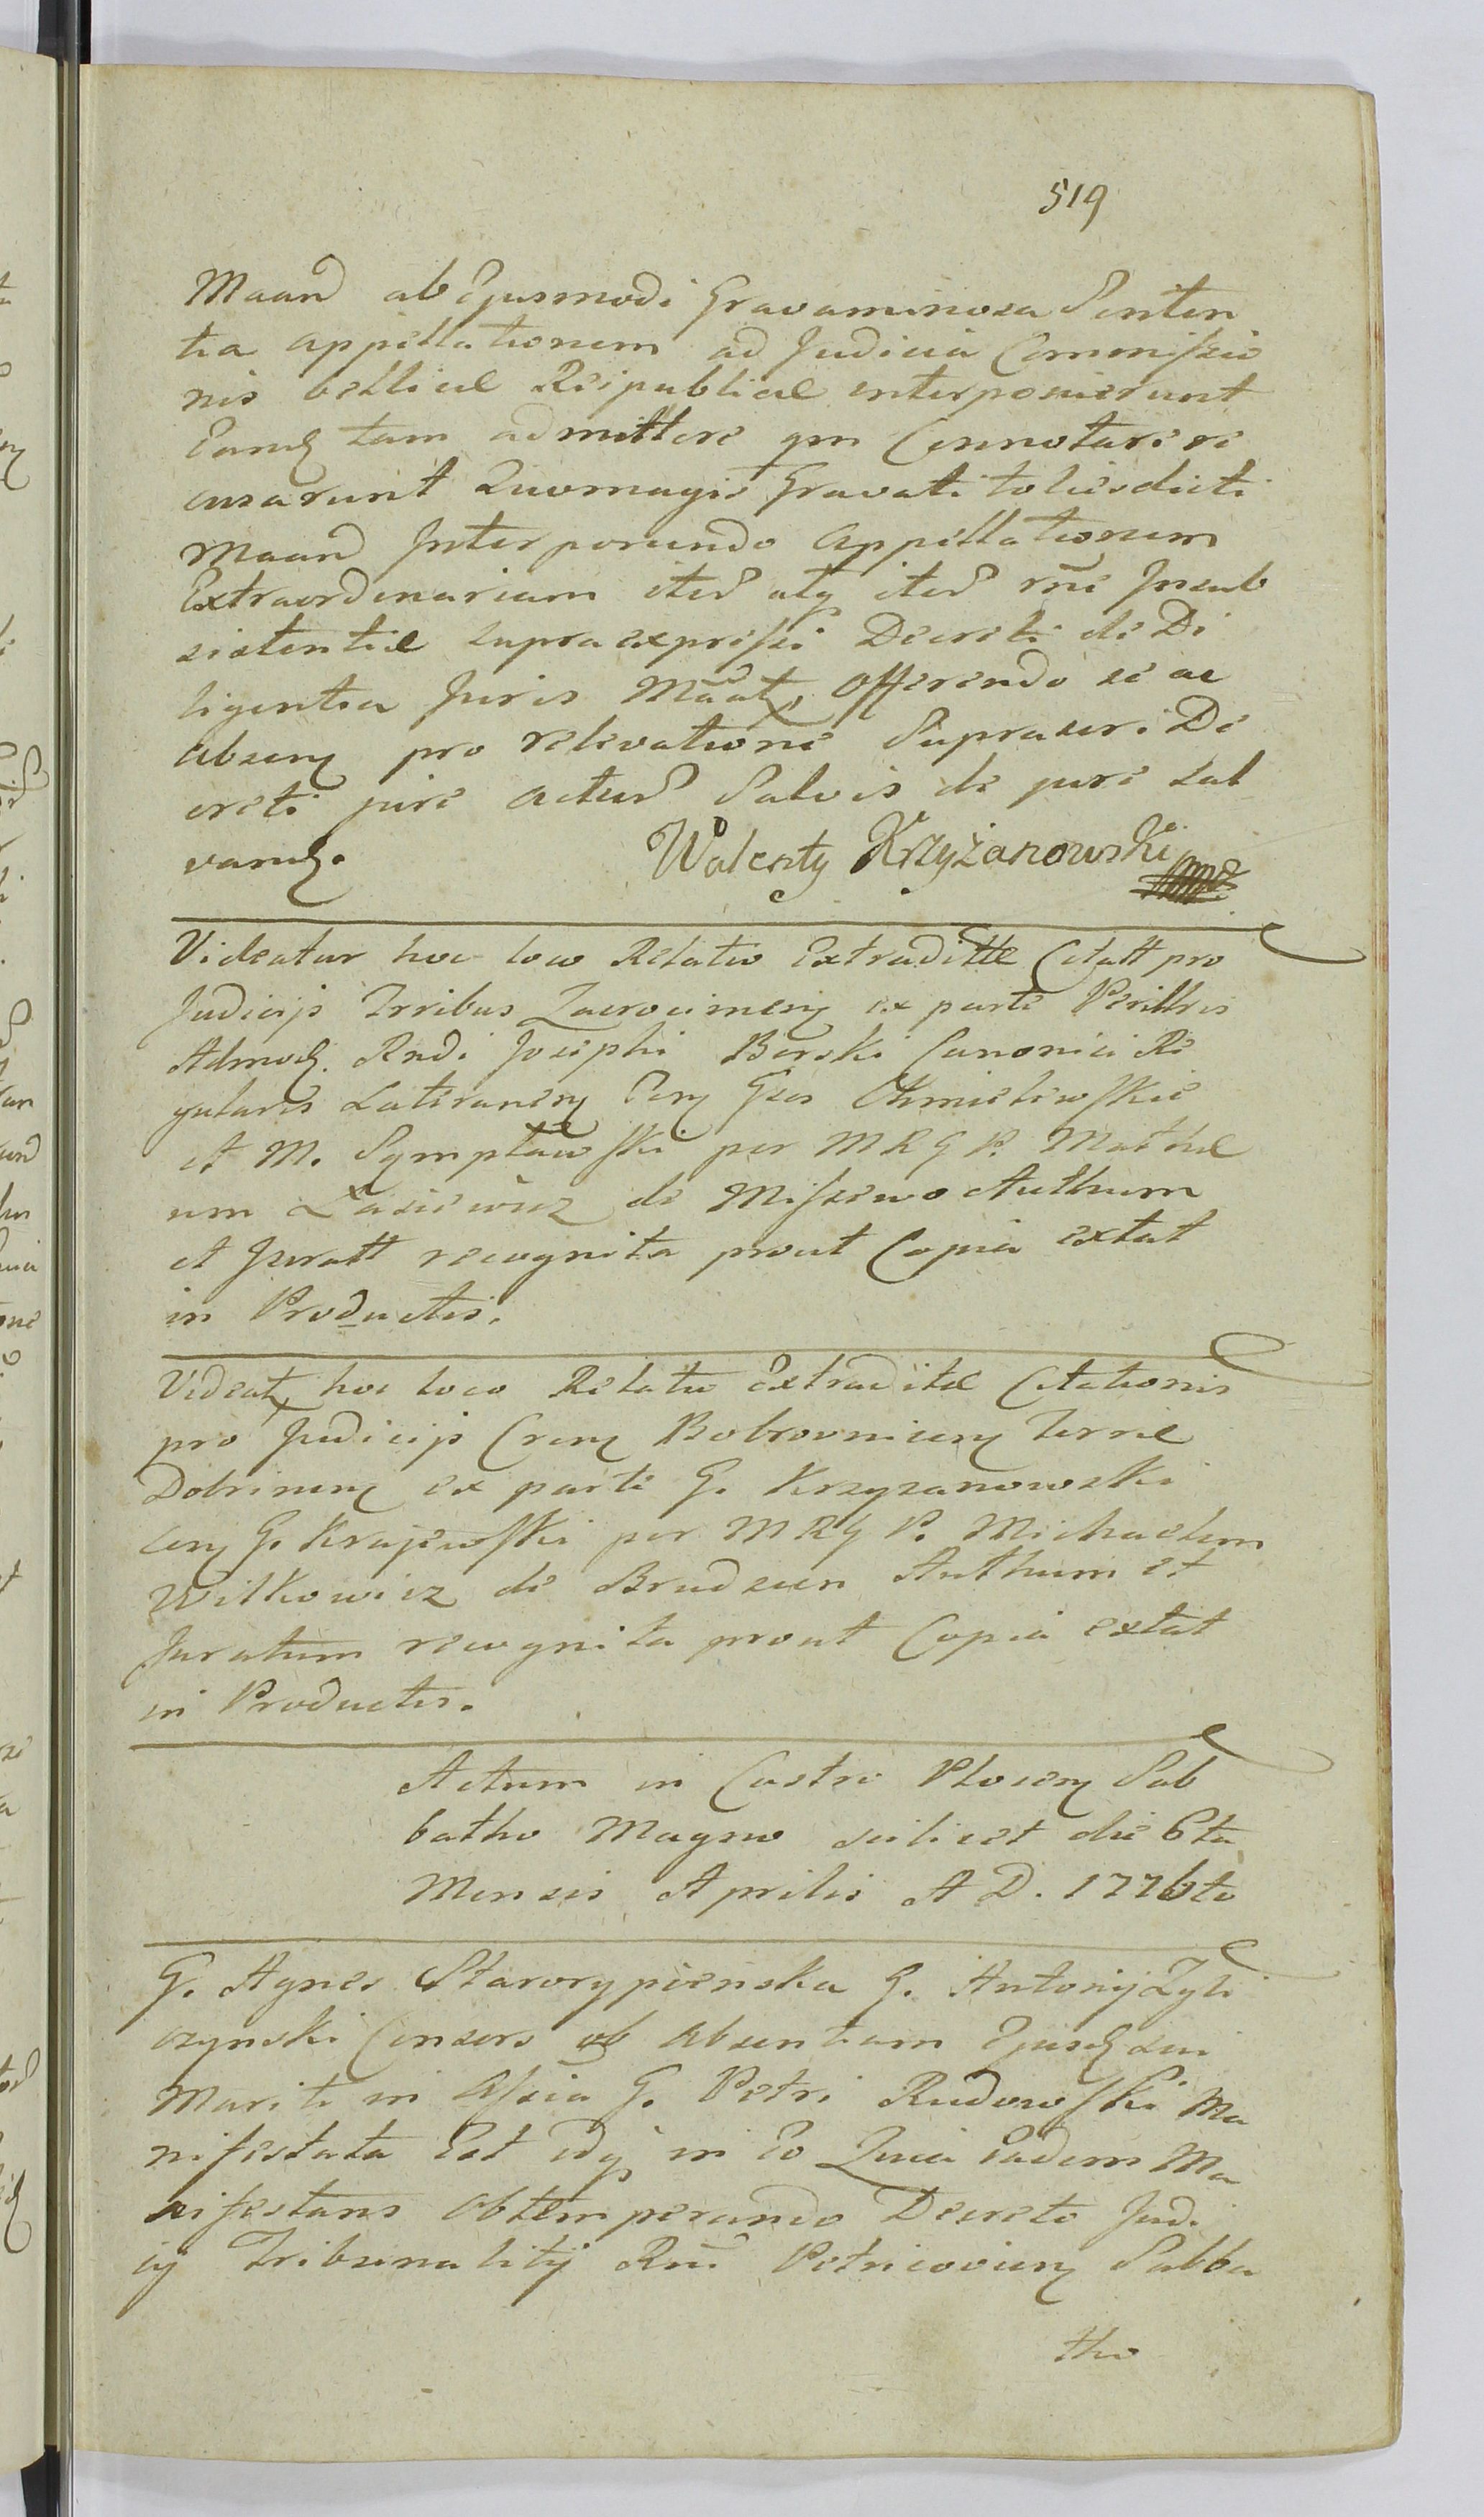 519
Maand ab Ejusmodi Gravaminosa Senten
tia appellationem ad Judicia Commissio
nis bellicae Reipublicae interposuerunt
Eamq tam admittere qm Connotare re
cusarunt Quomagis Gravati toties dicti
Maand Interponendo Appellationem
Extraordinariam ited atq ited rne Insub
sistentiae supra expressi Decreti de Di
ligentia Juris Maat, Offerendo se ac
absenq pro relevatione Suprascri De
creti jure acturd Salvis de jure sal
vandq.
Walenty Krzyżanowski mp
Videatur hoc loco Relatio Extraditae Citatt pro
Judicijs Trribus Zacrocimenq ex parte Perillris
Admodq. Rndi Josephi Borski Canonici Re
gularis Lateranenq Cenq Gsos Chmielewskie
et M. Symptawski per MRGP. Mathae
um Łasiewicz de Miszewo Authum
et Juratt recognita prout Copia extat
in Productis.
Videat, hoc loco Relatio Extraditae Citationis
pro Judicijs Crenq Bobrovnicenq Terrae
Dobrinenq ex parte G. Krzyzanowski
cenq G. Krajewski per MRG P. Michaelem
Witkowicz de Brudzen Authum et
Juratum recognita prout Copia extat
in Productis.
Actum in Castro Plocenq Sab
batho Magno scilicet die 6ta
Mensis Aprilis A D. 1776to
G. Agnes Starorypienska G. Antonij Zyli
czynski Consors ob absentiam Ejusdq sui
Mariti in Assia G. Petri Rudowski Ma
nifestata Est idq in Eo Quia Eadem Ma
nifestans Obtemperando Decreto Judi
cij Tribunalitij Rni Petricovienq Sabba
tho